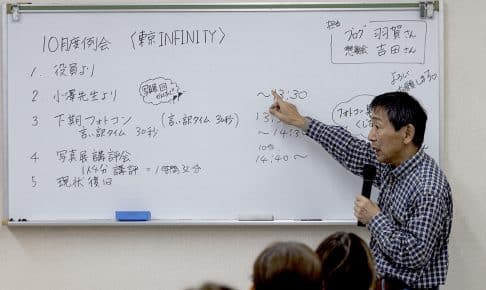 10月度例会 〈東京INFINITY〉
担当
ブログ 羽賀さん
懇親会 吉田さん
よろしく
お願いします
1. 役員より
2 小澤先生より
～13:30
3 下期フォトコン (言い訳タイム 30秒)
言い訳タイム 30秒
フォトコン
～14:30
10分
4 写真展講評会
14:40～
1人4分 講評 =1時間
5 現状復旧